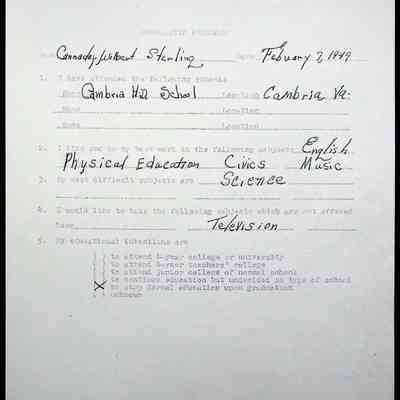 Name Cannaday, Wilbert Sterling Date February 7, 1949
1. I have attended the following schools
Name Cambria Hill School Location Cambria Va.
Name Location
Name Location
2. I like and do my best work in the following subjects English
Physical Education Civics Music
3. My most difficult subjects are Science
4. I would like to take the following subjects which are not offered
here Television
5. My educational intentions are
( ) to attend 4-year college or university
( ) to attend 4-year teachers' college
( ) to attend junior college or normal school
( ) to continue education but undecided as to type of school
(X) to stop formal education upon graduation
( ) unknown